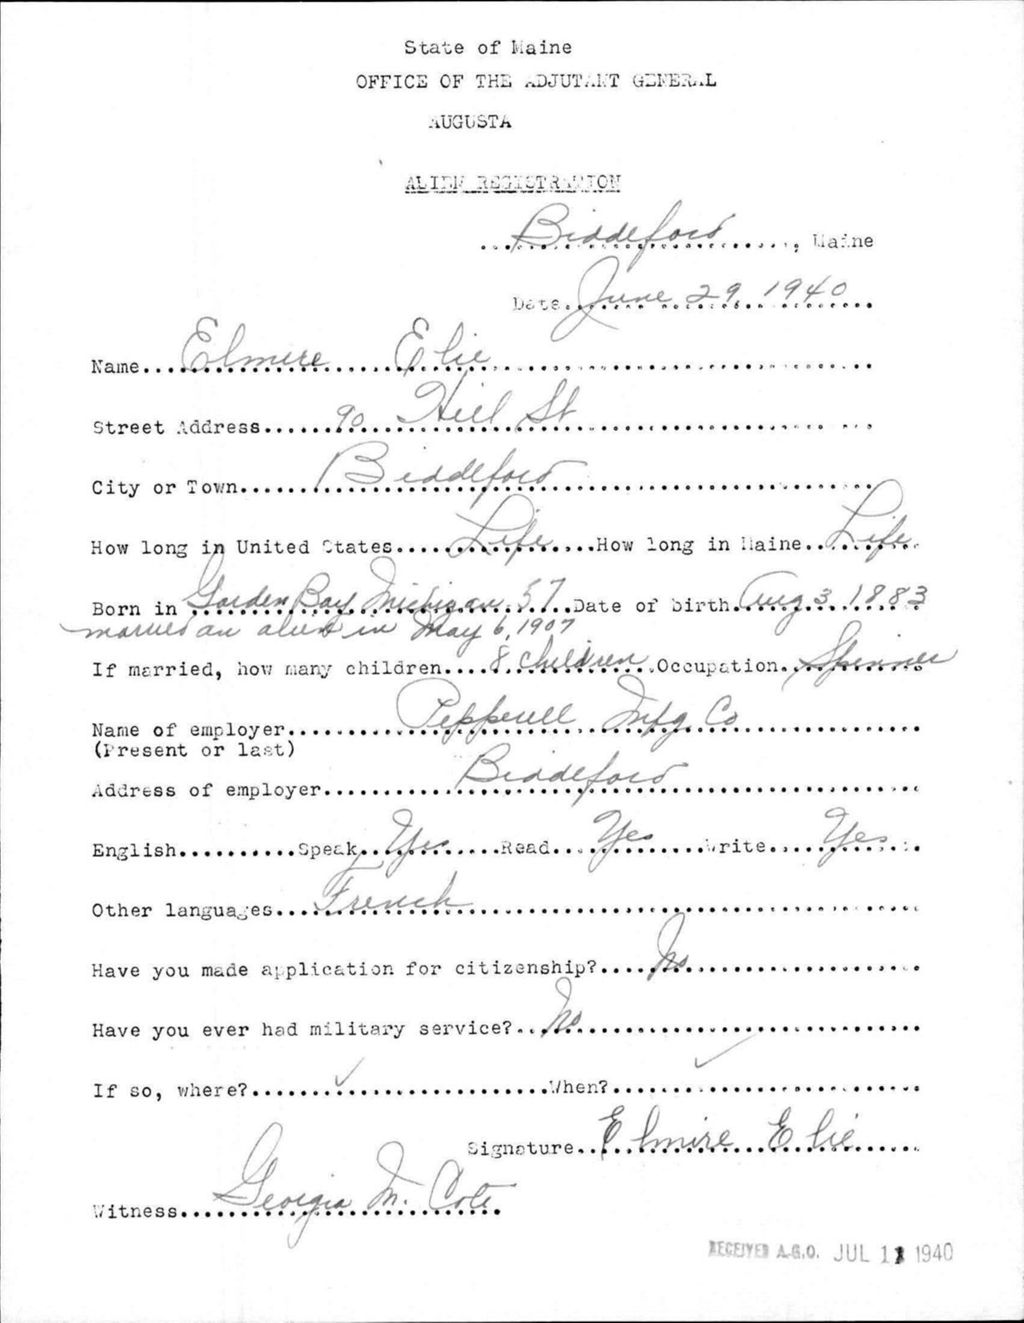 State of Maine
OFFICE OF THE ADJUTANT GENERAL
AUGUSTA
ALIEN REGISTRATION
Biddeford, Maine
Date June 29, 1940
Name Elmire Elie
Street Address 90 Hill St
City or Town Biddeford
How long in United States Life How long in Maine Life
Born in Garden Bay Michigan 57 Date of birth Aug 3, 1883
married an alien in May 6, 1907
If married, how many children 8 children Occupation Spinner
Name of employer Pepperell Mfg Co
(Present or last)
Address of employer Biddeford
English Speak Yes Read Yes Write Yes
Other languages French
Have you made application for citizenship? No
Have you ever had military service? No
If so, where? ✓ When? ✓
Signature Elmire Elie
Witness Georgia M. Cote
RECEIVED A.G.O. JUL 11 1940